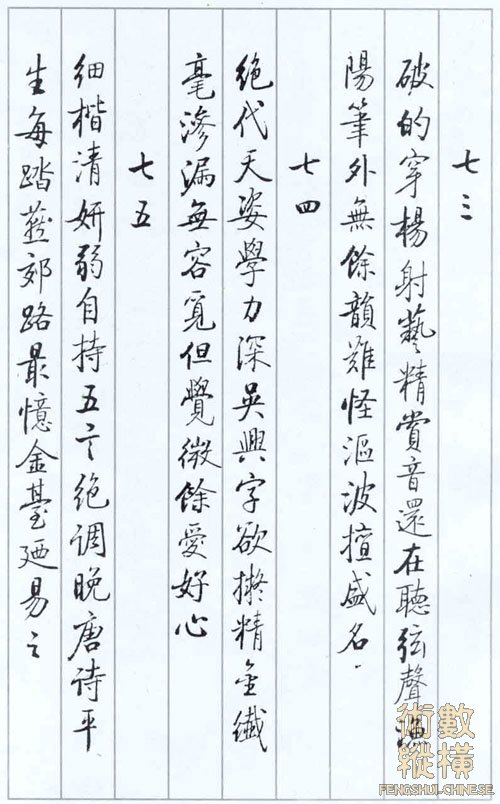 七三
破的穿楊射藝精賞音還在聽弦聲漁
陽筆外無餘韻難怪漚波擅盛名.
七四
絕代天姿學力深吳興字欲擬精金纖
毫滲漏無容覓但覺微餘愛好心
七五
細楷清妍弱自持五言絕調晚唐詩平
生每踏燕郊路最憶金臺廼易之
術數
縱橫
FENGSHUI-CHINESE